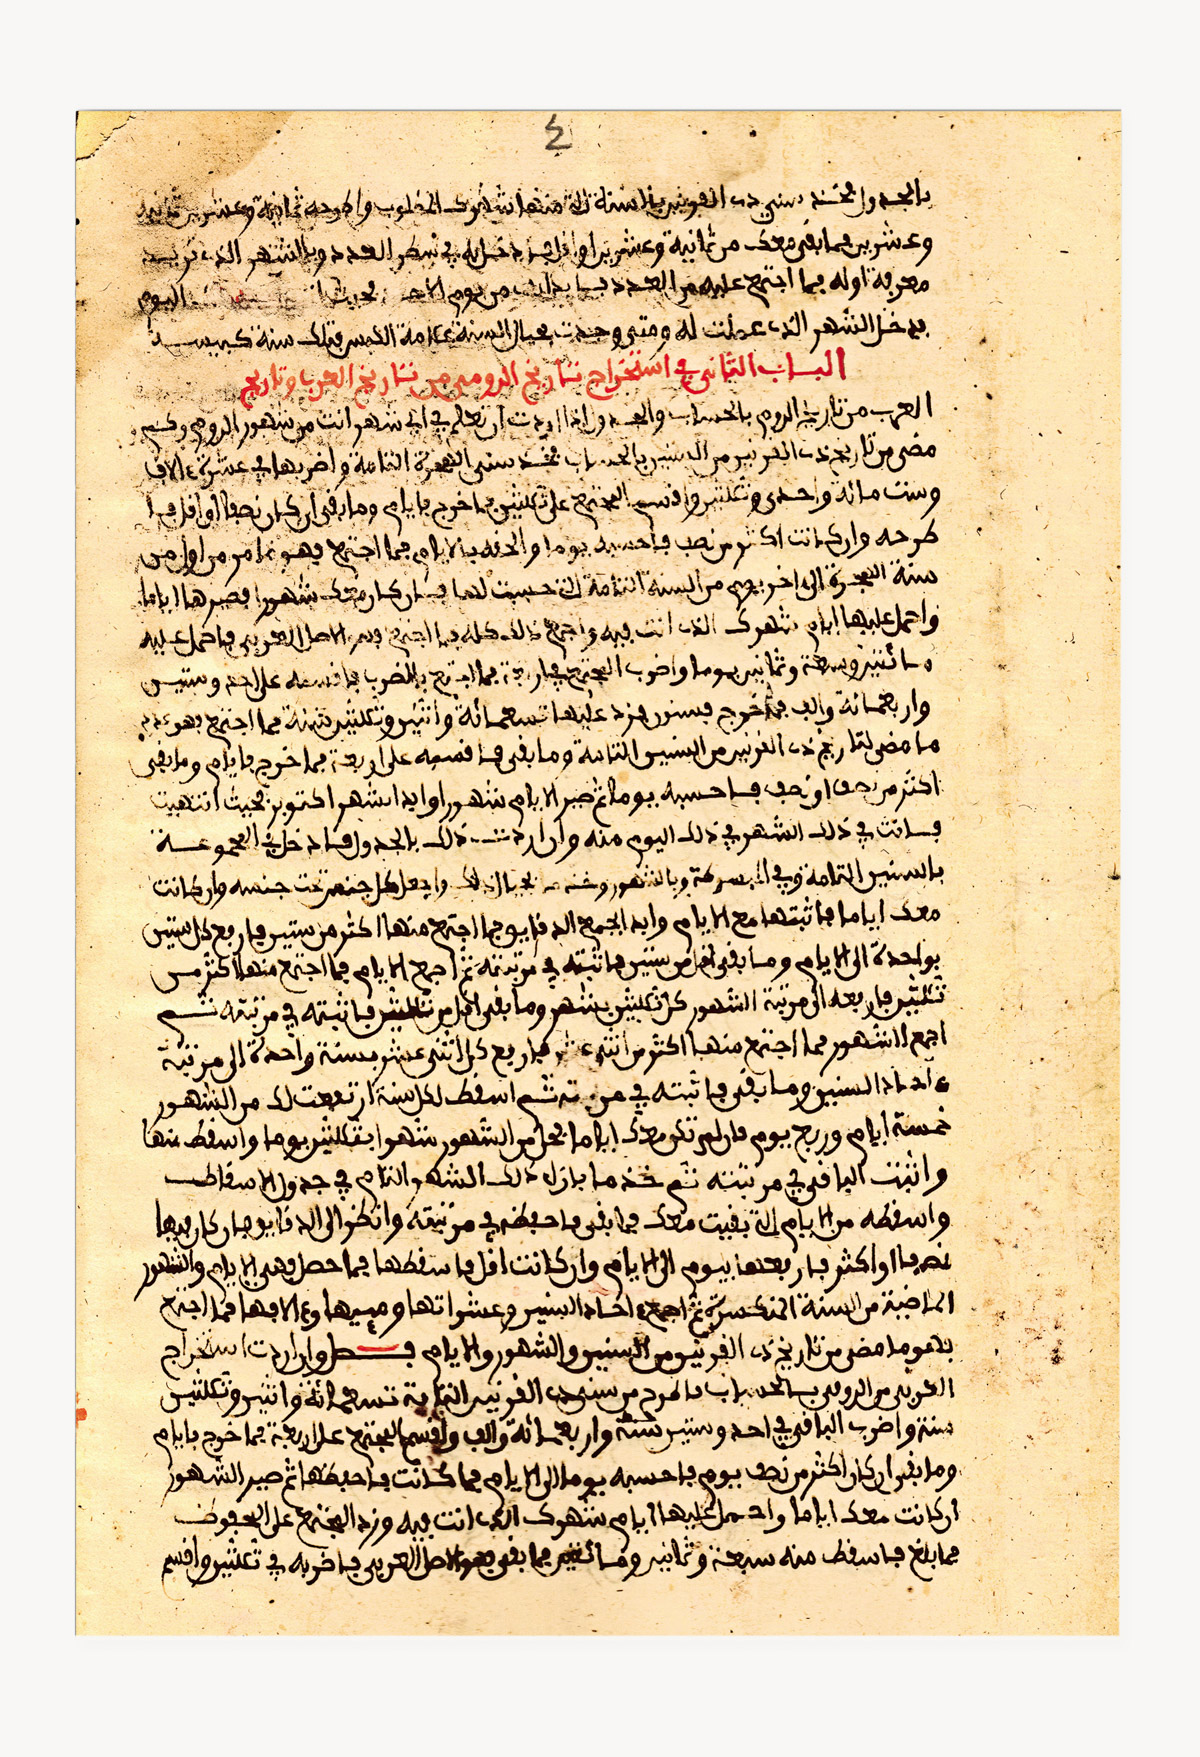 ٤
بالجدول فخذ سني ذي القرنين بالسنة التي منها شهرك المطلوب واطرحه ثمانية وعشرين ثمانية
وعشرين فما بقي معك من ثمانية وعشرين او اقل فادخل به في سطر العدد وبالشهر الذي تريد
معرفة اوله فما اجتمع عليه من العدد فابدا به من يوم الاحد فحيث اليوم
يدخل الشهر الذي عملت له ومتى وجدت بحيال السنة علامة الكبس فتلك سنة كبيسة
الباب الثاني في استخراج تاريخ الروم من تاريخ العرب وتاريخ
العرب من تاريخ الروم بالحساب والجدول اذا اردت ان تعلم في اي شهر انت من شهور الروم وكم
مضى من تاريخ ذي القرنين من السنين بالحساب فخذ سني الهجرة التامة واضربها في عشرة ءالاف
وست مائة واحدى وثلثين واقسم المجتمع على ثلثين فما خرج فايام وما بقي ان كان نصفا او اقل فا
طرحه وان كانت اكثر من نصف فاحسبه يوما والحقه بالايام فما اجتمع فهو ما مر من اول من
سنة الهجرة الى اخر يوم من السنة التامة التي حسبت لها فان كان معك شهورا فصيرها اياما
واحمل عليها ايام شهرك الذي انت فيه واجمع ذلك كله فما اجتمع فهو الاصل العربي فاحمل عليه
مائتين وسبعة وثمانين يوما واضرب المجتمع في اربعة فما اجتمع بالضرب فاقسمه على احد وستين
واربعمائة والف فما خرج فسنون فزد عليها تسعمائة واثنين وثلثين سنة فما اجتمع فهو عدد
ما مضى لتاريخ ذي القرنين من السنين التامة وما بقي فاقسمه على اربعة فما خرج فايام وما بقي
اكثر من نصف او نصف فاحسبه يوما ثم صير الايام شهورا وابدا بشهر اكتوبر فحيث انتهيت
فانت في ذلك الشهر في ذلك اليوم منه وان اردت ذلك بالجدول فادخل في المجموعة
بالسنين التامة وفي المبسوطة وبالشهور وخذ ما بحيال ذلك واجعل كل جنس تحت جنسه وان كانت
معك اياما فاثبتها مع الايام وابدا بجمع الدقايق فما اجتمع منها اكثر من ستين فارفع كل ستين
بواحدة الى الايام وما بقي اقل من ستين فاثبته في مرتبته ثم اجمع الايام فما اجتمع منها اكثر من
ثلثين فارفعه الى مرتبة الشهور كل ثلثين بشهر وما بقي اقل من ثلثين فاثبته في مرتبته ثم
اجمع الشهور فما اجتمع منها اكثر من اثني عشر فارفع كل اثني عشر بسنة واحدة الى مرتبة
ءاحاد السنين وما بقي فاثبته في مرتبته ثم اسقط لكل سنة ارتفعت لك من الشهور
خمسة ايام وربع يوم فان لم تكن معك اياما فحل من الشهور شهرا بثلثين يوما واسقط منها
واثبت الباقي في مرتبته ثم خذ ما بازاء ذلك الشهر التام في جدول الاسقاط
واسقطه من الايام التي بقيت معك فما بقي فاحفظه في مرتبته وانظر الى الدقايق فان كان فيها
نصفا او اكثر فارفعها بيوم الى الايام وان كانت اقل فاسقطها فما حصل فهي الايام والشهور
الماضية من السنة المنكسرة ثم اجمع ءاحاد السنين وعشراتها وميها وءالافها فما اجتمع
فهو ما مضى من تاريخ ذي القرنين من السنين والشهور والايام فصل وان اردت استخراج
العربي من الرومي بالحساب فاطرح من سني ذي القرنين التامة تسعمائة واثنين وثلثين
سنة واضرب الباقي في احد وستين سنة واربعمائة والف واقسم المجتمع على اربعة فما خرج فايام
وما بقي ان كان اكثر من نصف يوم فاحسبه يوما الى الايام فما كانت فاحفظها ثم صير الشهور
ان كانت معك اياما واحمل عليها ايام شهرك الذي انت فيه وزد المجتمع على المحفوظ
فما بلغ فاسقط منه سبعة وثمانين ومائتين فما بقي فهو الاصل العربي فاضربه في ثلثين واقسم